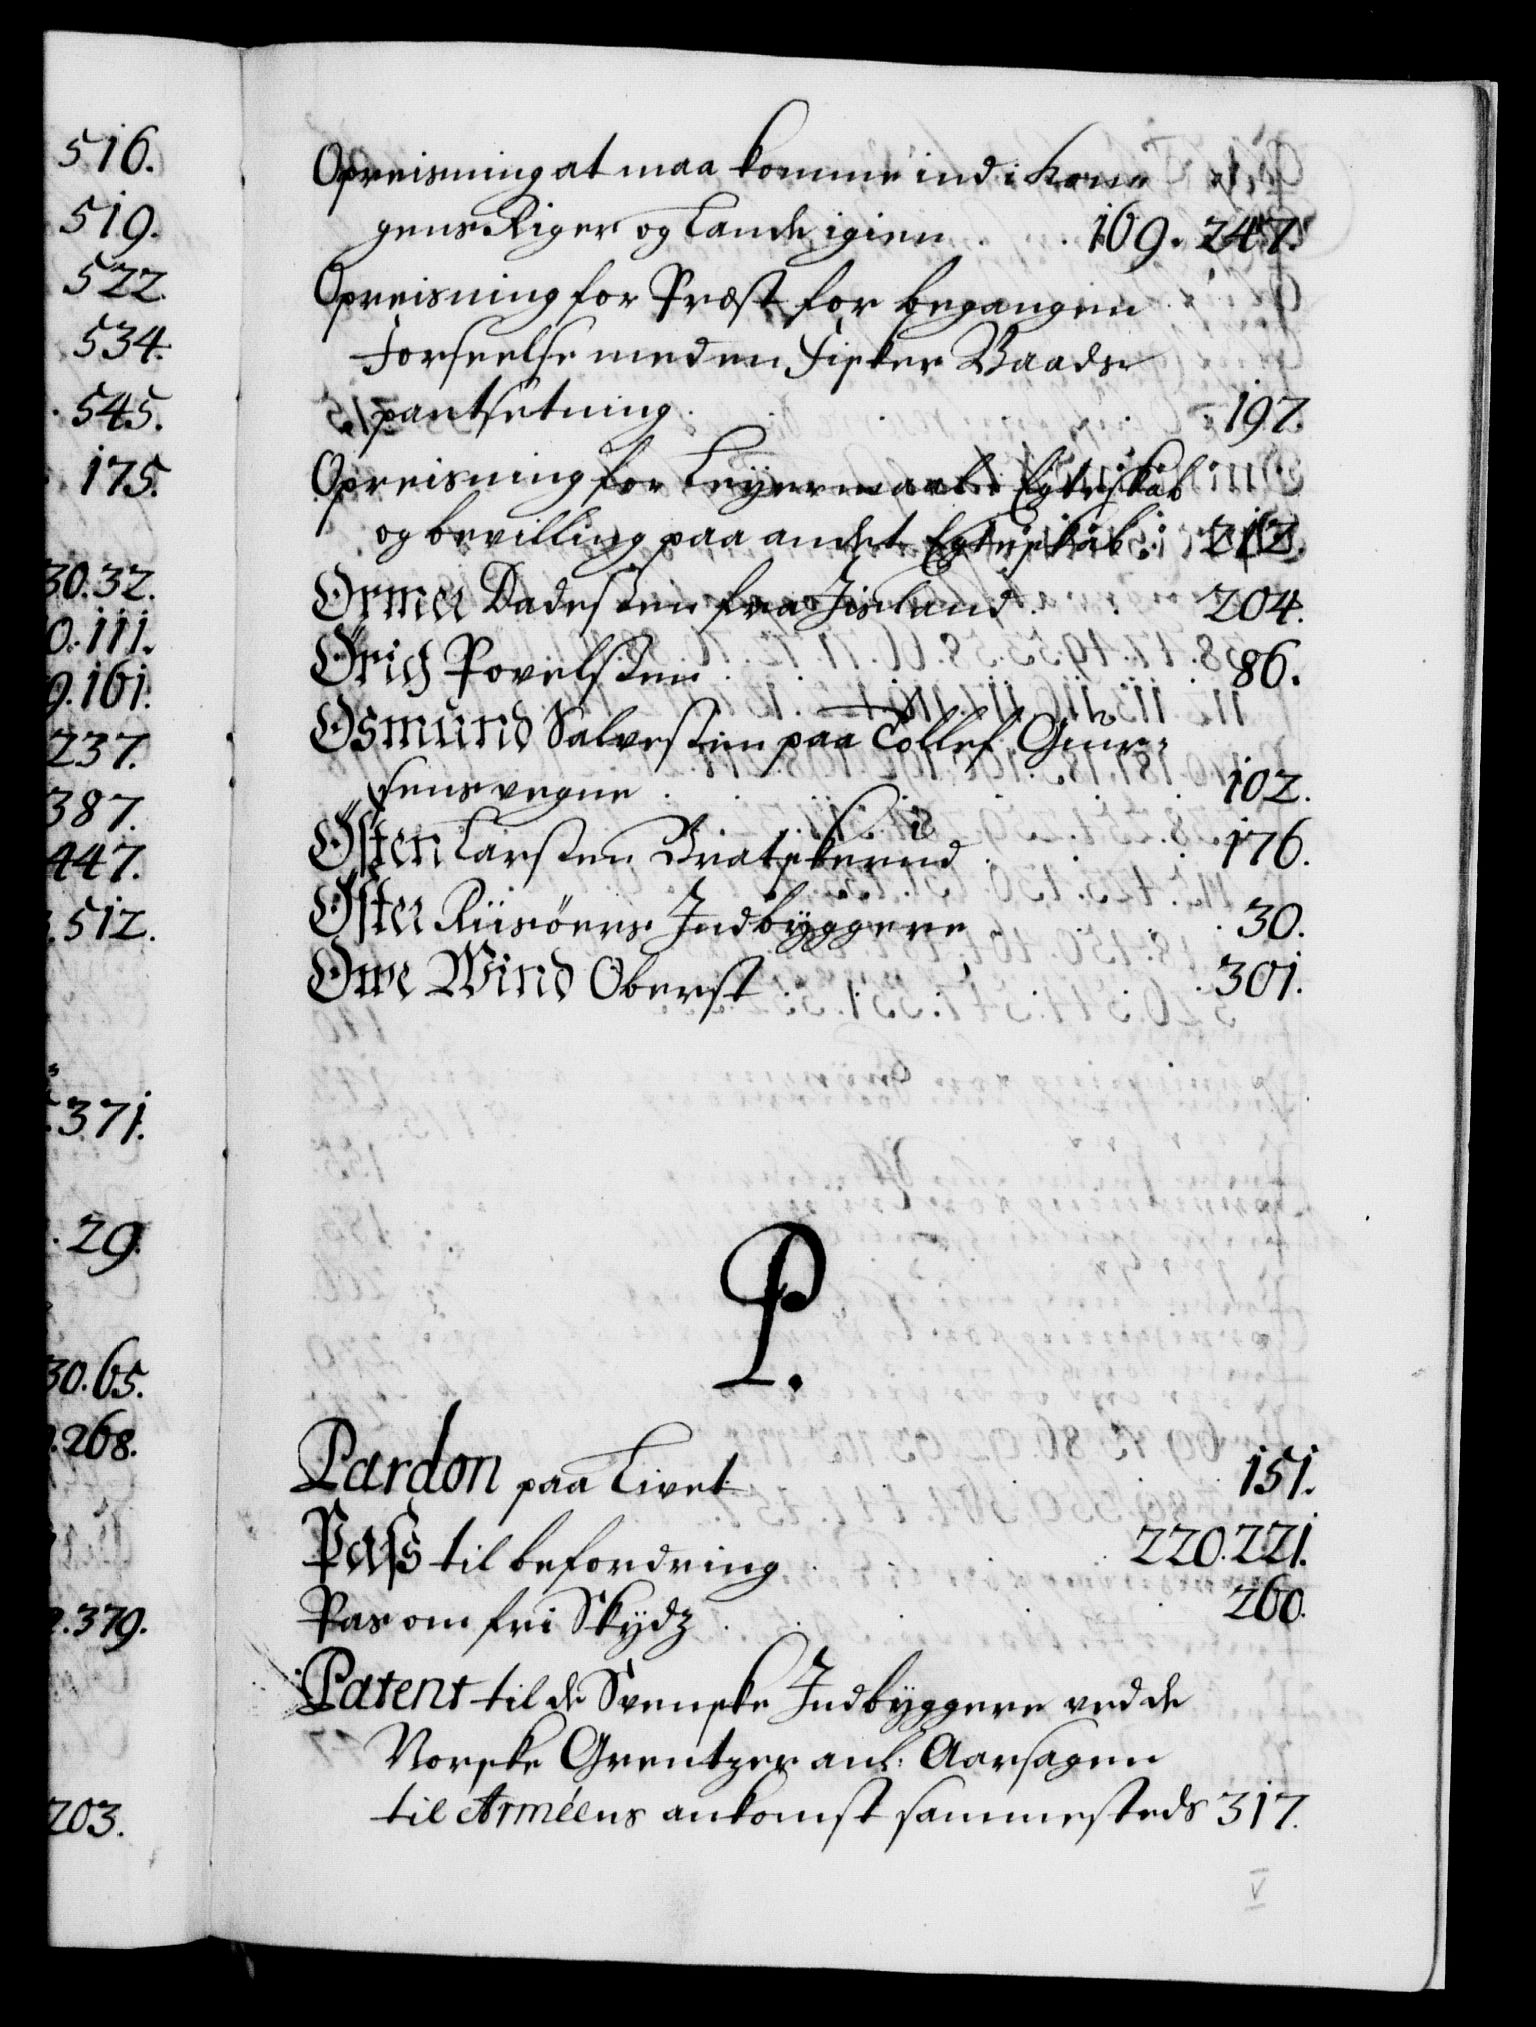 516.
519.
522.
534.
545.
175.
30.32.
0.111.
9.161.
237.
387.
447.
.512.
.371.
29.
30.65.
.268.
.379.
203.
Opreisning at maa komme ind i Kon
gens Riger og Lande igien 169. 247.
Opreisning for Præst for begangen
Forseelse med en Fisker Baads
pantsetning. 197.
Opreisning for Leyermaal i Egteskab
og bevilling paa andet Egteskab. 212.
Ormer Dadesen fra Jisland. 204.
Örich Povelsen 86.
Osmund Salvesen paa Tollef
sens vegne 102.
Östen Larsen Bratskerud 176.
Öster Riisöers Indbyggere 30.
Owe Wind Oberst 301.
P.
Pardon paa Livet 151.
Pass til befordring 220.221.
Pas om fri Skydz 260.
Patent til de Svenske Indbyggere ved de
Norske Grentzer anl. Aarsagen
til Arméens ankomst sammesteds 317.